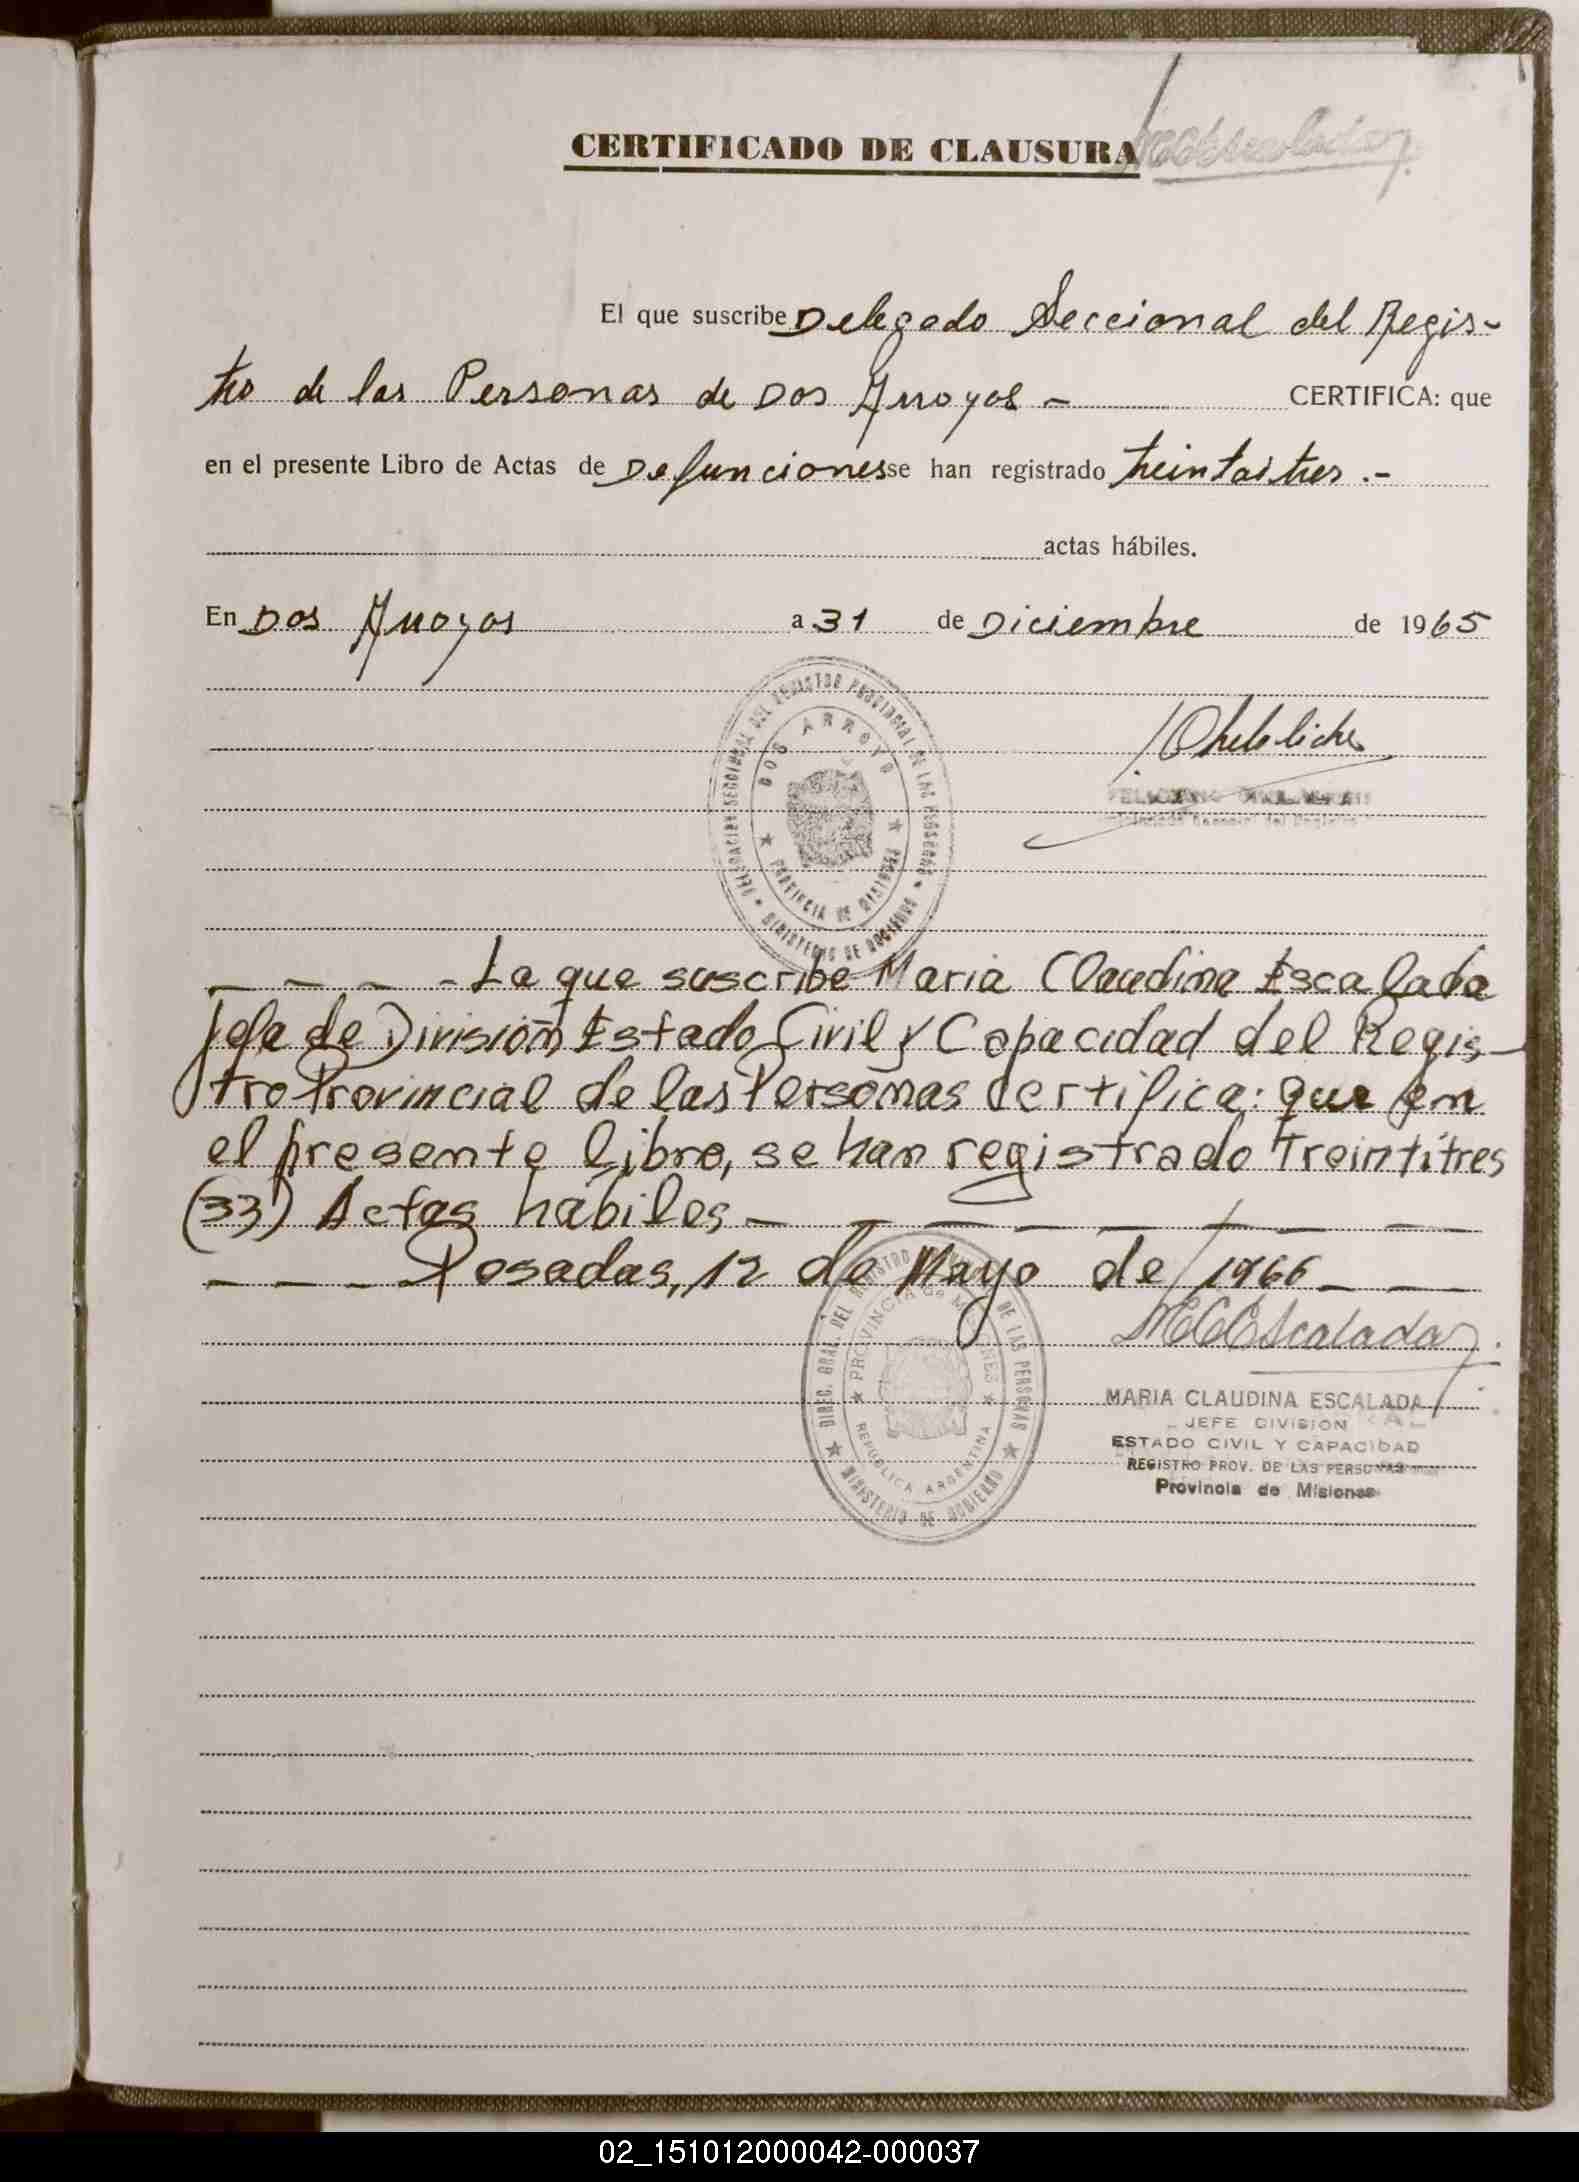 CERTIFICADO DE CLAUSURA MCEscalada
El que suscribe Delegado Seccional del Regis-
tro de las Personas de Dos Arroyos - CERTIFICA: que
en el presente Libro de Actas de Defunciones se han registrado treintaitres.-
actas hábiles.
En Dos Arroyos a 31 de Diciembre de 1965
DELEGACION SECCIONAL DEL REGISTRO PROVINCIAL DE LAS PERSONAS
DOS ARROYOS
PROVINCIA DE MISIONES
MINISTERIO DE GOBIERNO
- - - - La que suscribe Maria Claudina Escalada
Jefe de División Estado Civil y Capacidad del Regis-
tro Provincial de las Personas Certifica: que en
el presente libro, se han registrado Treintitres
(33) Actas habiles - - - - - - - -
- - - Posadas, 12 de Mayo de 1966 - - -
DIREC. GRAL. DEL REGISTRO PROVINCIAL DE LAS PERSONAS
PROVINCIA DE MISIONES
REPUBLICA ARGENTINA
MINISTERIO DE GOBIERNO
MCEscalada
MARIA CLAUDINA ESCALADA
JEFE DIVISION
ESTADO CIVIL Y CAPACIDAD
REGISTRO PROV. DE LAS PERSONAS
Provincia de Misiones
02_151012000042-000037